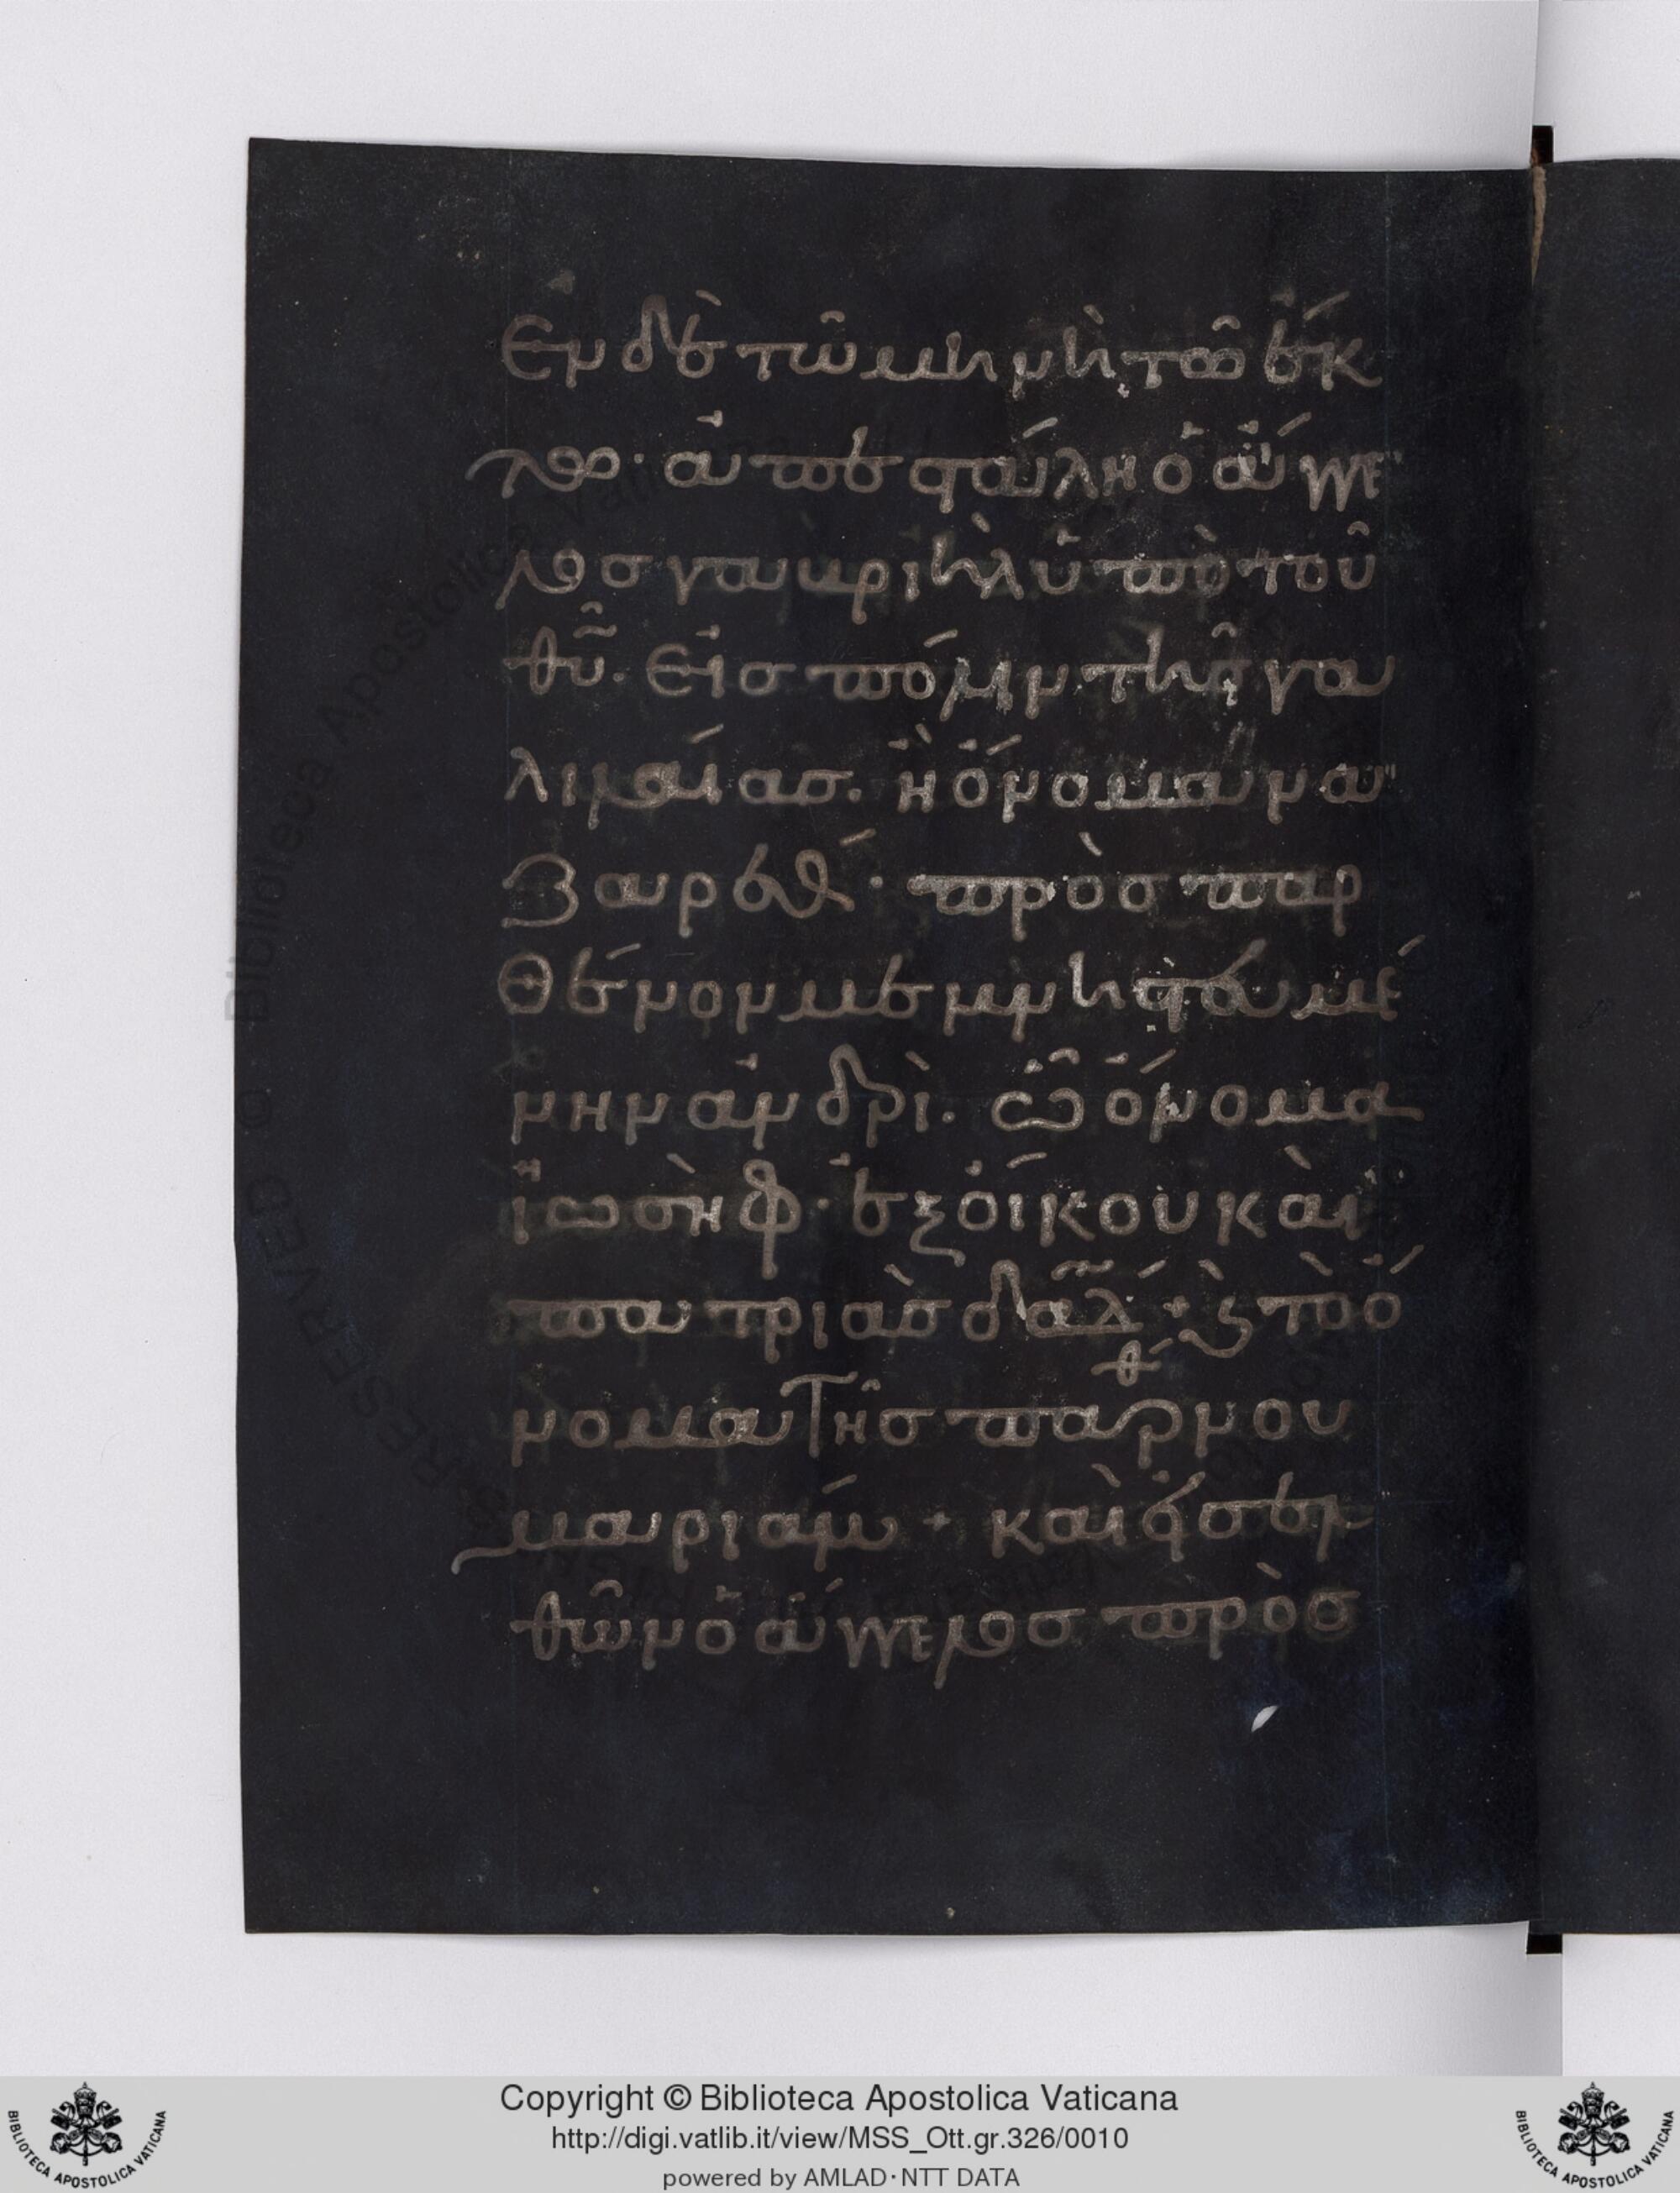 Ἐν δὲ τῶ μηνὶ τῶ ἕκ
τω· ἀπεστάλη ὁ ἄγγε
λος γαβριὴλ ὑπὸ τοῦ
θῦ. εἰς πόλιν τῆς γα
λιλαίας. ἧ ὄνομα να
ζαρέθ· πρὸς παρ
θένον μεμνηστευμέ
νην ἀνδρὶ. ὧ ὄνομα
ἰωσὴφ· ἐξ οἴκου καὶ
πατριᾶς δαδ + καὶ τὸ ὄ
νομα τῆς παρθένου
μαριάμ + καὶ εἰσελ
θὼν ὁ ἄγγελος πρὸς
Copyright © Biblioteca Apostolica Vaticana
http://digi.vatlib.it/view/MSS_Ott.gr.326/0010
powered by AMLAD·NTT DATA
BIBLIOTECA APOSTOLICA VATICANA
BIBLIOTECA APOSTOLICA VATICANA